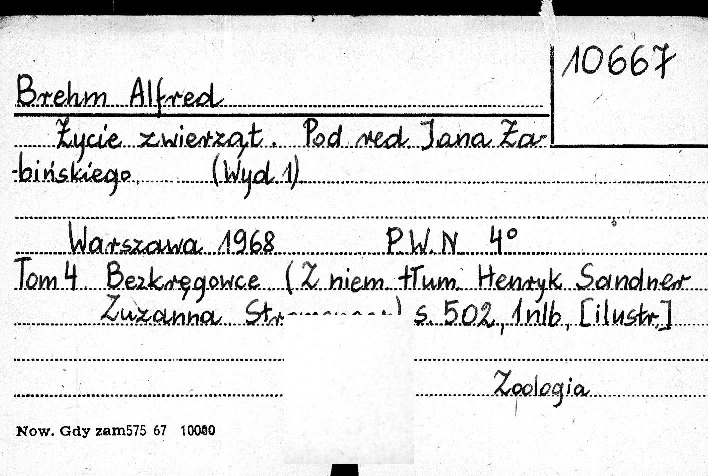 10667
Brehm Alfred
Życie zwierząt. Pod red. Jana Ża-
-bińskiego (Wyd. 1)
Warszawa 1968 P.W.N 4°
Tom 4 Bezkręgowce (Z niem tłum Henryk Sandner
Zuzanna s. 502, 1 nlb, [ilustr.]
Zoologia
Now. Gdy zam575 67 10000